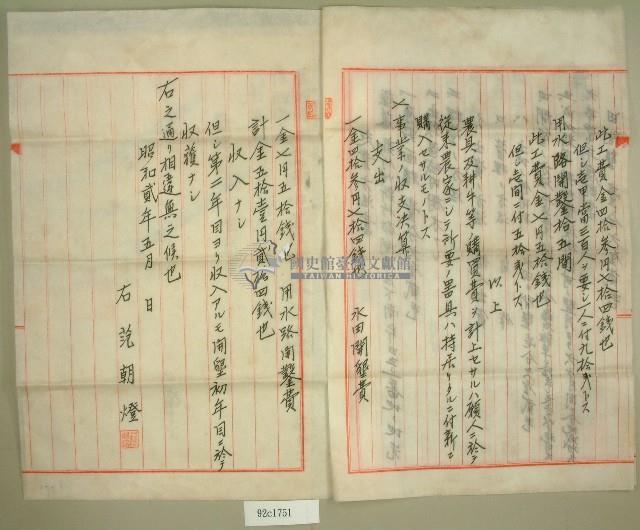 此工費金四拾參円八拾四錢也
但シ壱甲當三百人ヲ要シ一人ニ付九拾戋トス
用水路開鑿拾五間
此工費金七円五拾錢也
但シ壱間ニ付五拾戋トス
以上
農具及耕牛等ノ購買費ヲ計上セサルハ願人ニ於テ
從来農家ニシテ所要ノ器具ハ持居リタルニ付新ニ
購入セサルモノトス
八、事業ノ收支決算
支出
一金四拾參円八拾四錢也 水田開墾費
一金七円五拾錢也 用水路開鑿費
計金五拾壹円貳拾四錢也
收入ナシ
但シ第二年目ヨリ收入アルモ開墾初年目ニ於テ
收穫ナシ
右之通リ相違無之候也
昭和貳年五月 日
右 范朝燈
國史館臺灣文獻館
TAIWAN HISTORICA
92c1751